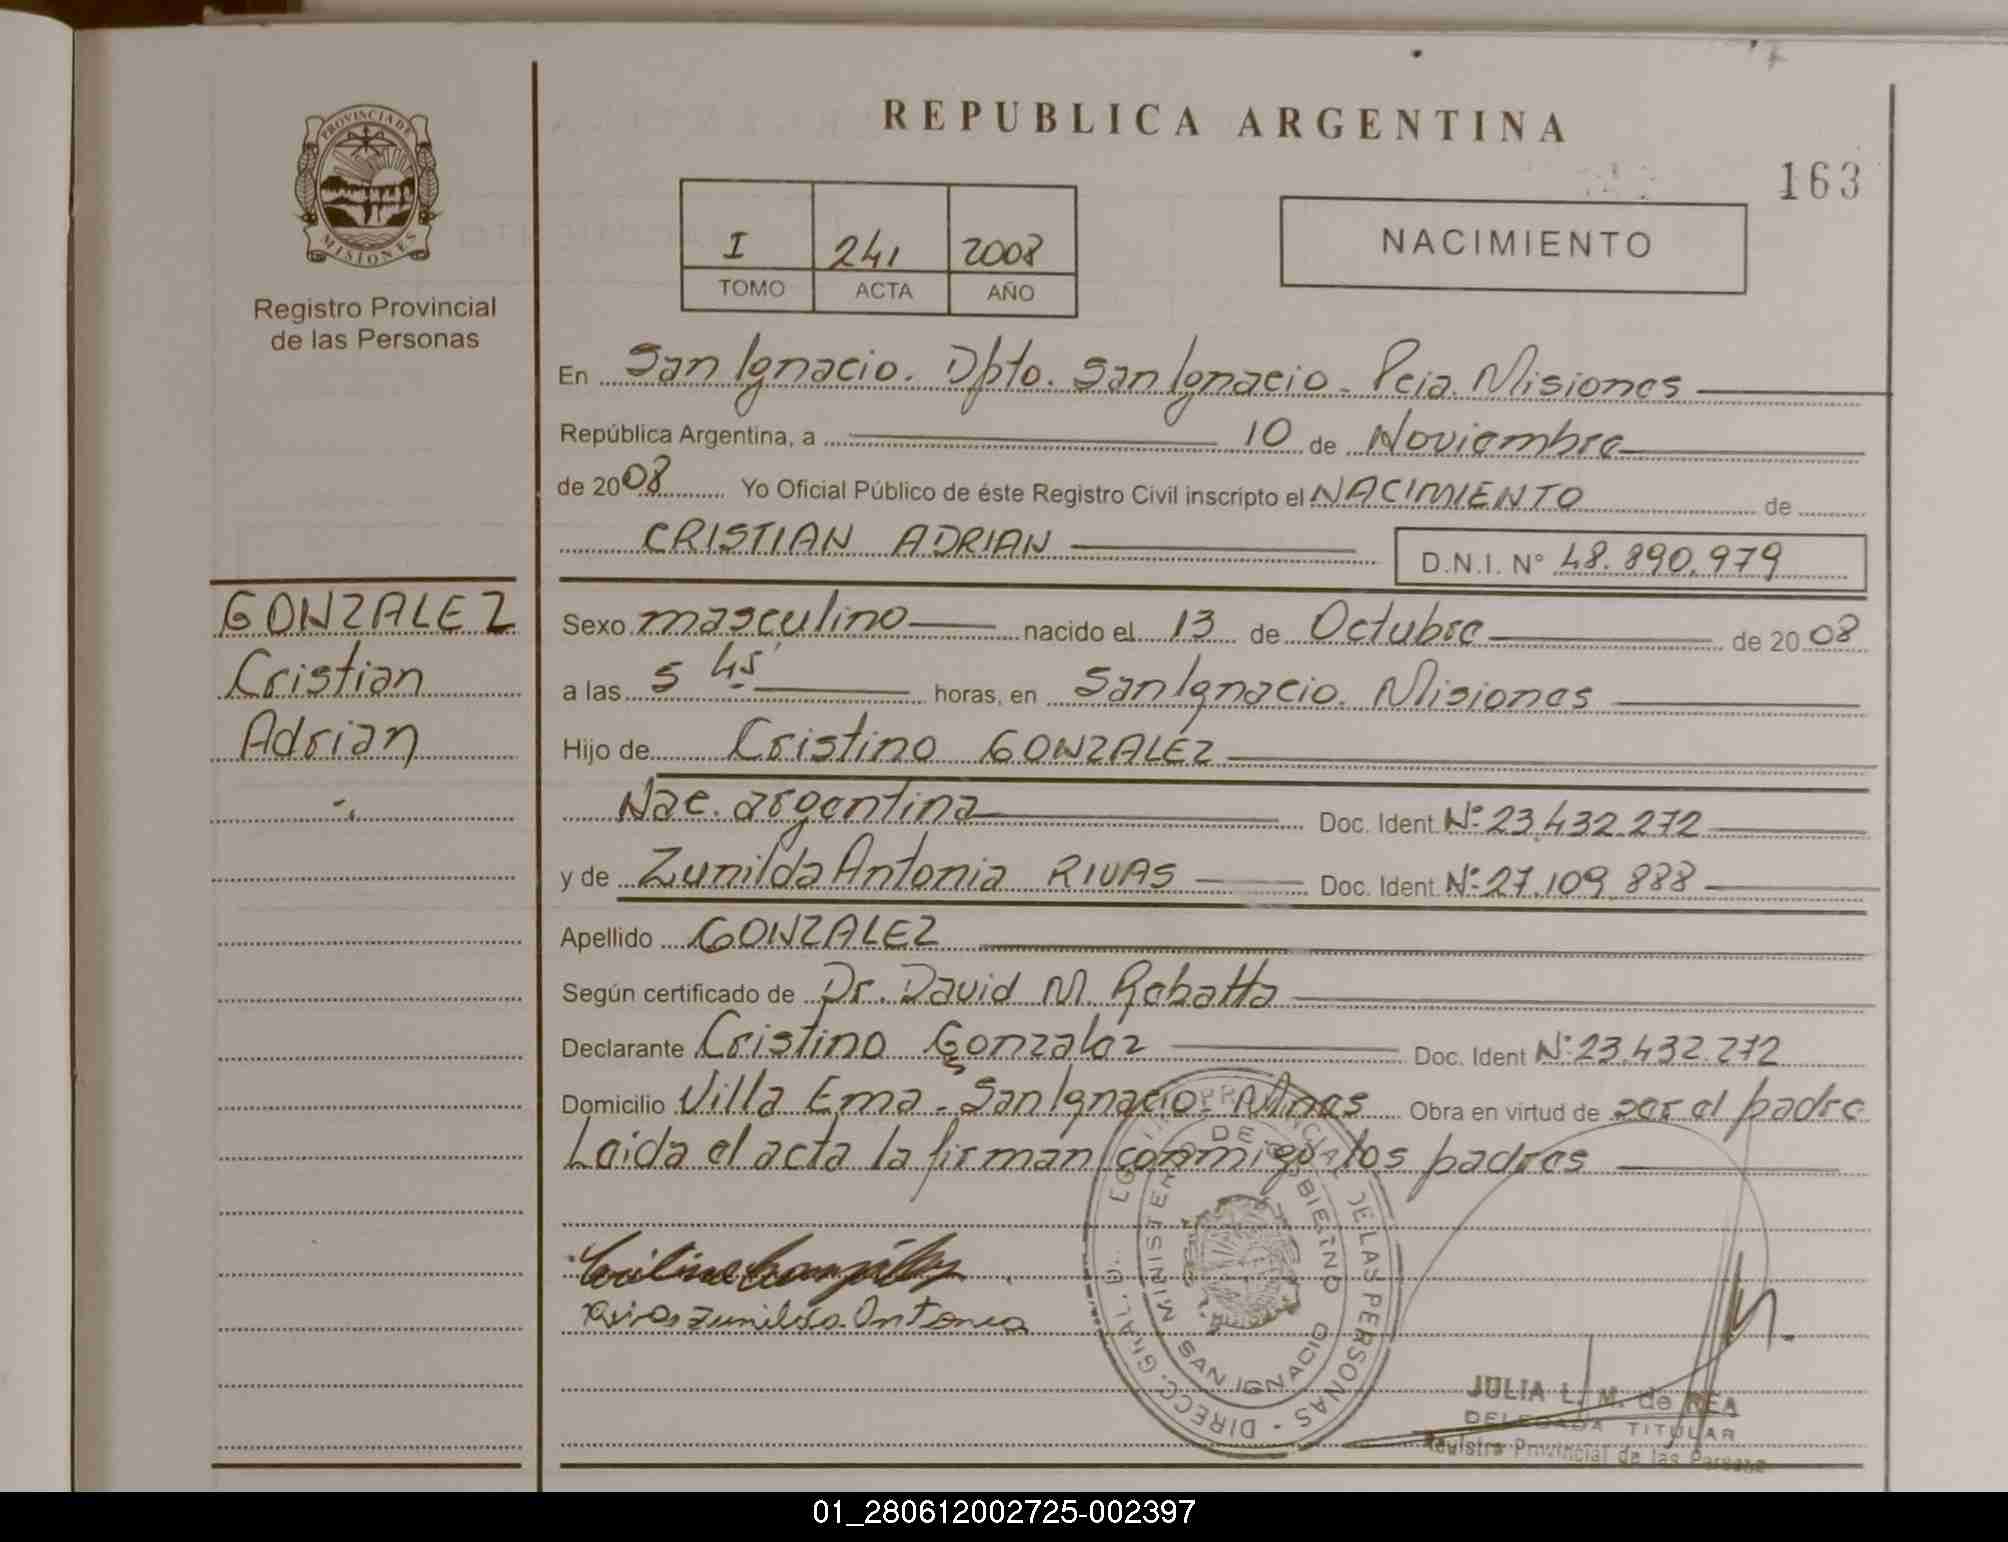 REPUBLICA ARGENTINA
163
PROVINCIA DE
MISIONES
Registro Provincial
de las Personas
I 241 2008
TOMO ACTA AÑO
NACIMIENTO
En San Ignacio. Dpto. San Ignacio. Pcia. Misiones
República Argentina, a 10 de Noviembre
de 2008 Yo Oficial Público de éste Registro Civil inscripto el NACIMIENTO de
CRISTIAN ADRIAN D.N.I. N° 48.890.979
GONZALEZ
Cristian
Adrian
Sexo masculino nacido el 13 de Octubre de 2008
a las 5 45' horas, en San Ignacio. Misiones
Hijo de Cristino GONZALEZ
Nac. argentina Doc. Ident. N° 23.432.272
y de Zunilda Antonia RIVAS Doc. Ident. N° 27.109.888
Apellido GONZALEZ
Según certificado de Dr. David M. Rabatta
Declarante Cristino Gonzalez Doc. Ident N° 23.432.272
Domicilio Villa Ema - San Ignacio - Mnes Obra en virtud de ser el padre
Leida el acta la firman conmigo los padres
Rivas Zunilda Antonia
DIRECC. GRAL. DE LAS PERSONAS
MINISTERIO DE GOBIERNO
SAN IGNACIO
JULIA L. M. de REA
DELEGADA TITULAR
Registro Provincial de las Persona
01_280612002725-002397